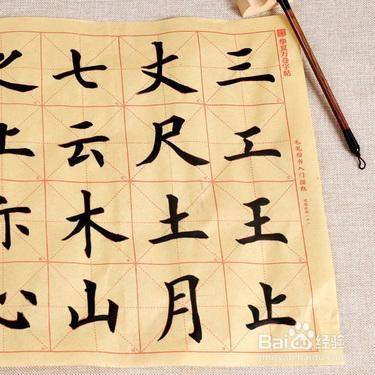 華夏万卷字帖
毛笔楷书入门描红
三工王止
丈尺土月
七云木山
上示心
Baidu经验
jingyan.baidu.com